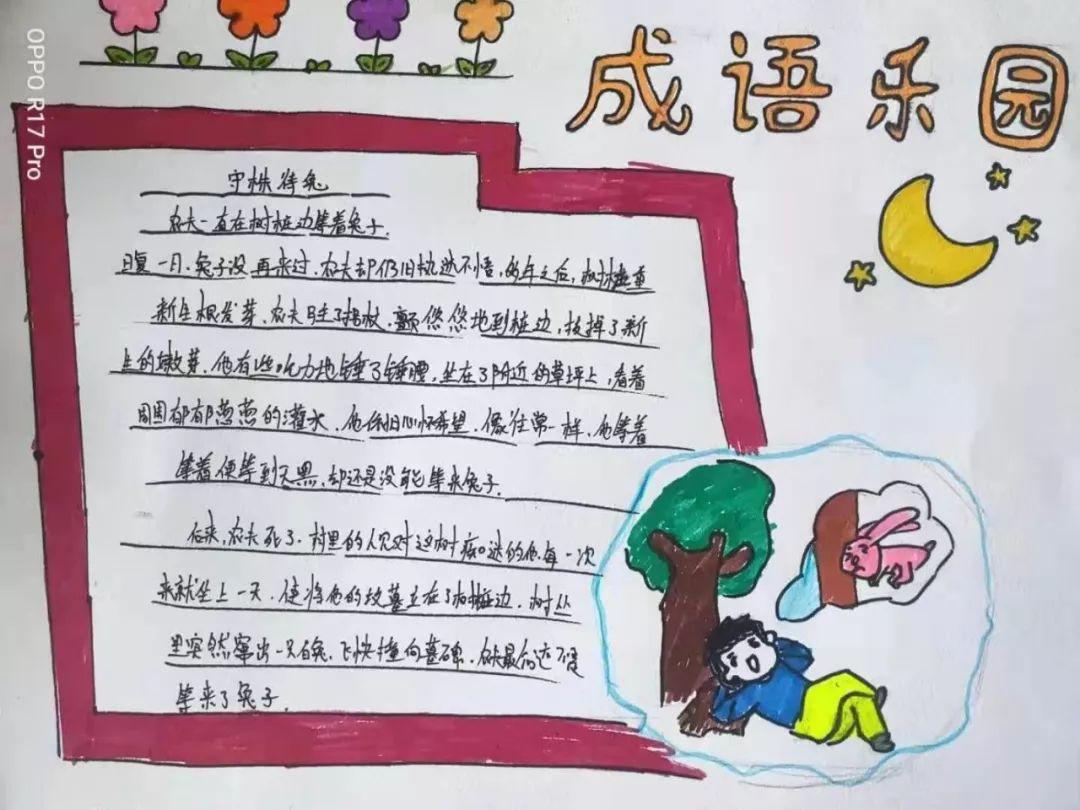 OPPO R17 Pro
成语乐园
守株待兔
农夫一直在树桩边等着兔子.
日复一日,兔子没再来过,农夫却仍旧执迷不悟,多年之后,树桩重
新生根发芽、农夫拄了拐杖,颤悠悠地到桩边,拔掉了新
生的嫩芽、他有些吃力地锤了锤腰,坐在了附近的草坪上,看着
周围郁郁葱葱的灌木、他依旧心怀希望、像往常一样、他等着
等着便等到天黑,却还是没能等来兔子.
后来,农夫死了.村里的人见对这树痴迷的他每一次
来就坐上一天、便将他的坟墓立在了树桩边.树丛
里突然窜出一只白兔、飞快撞向墓碑.农夫最后还是
等来了兔子.